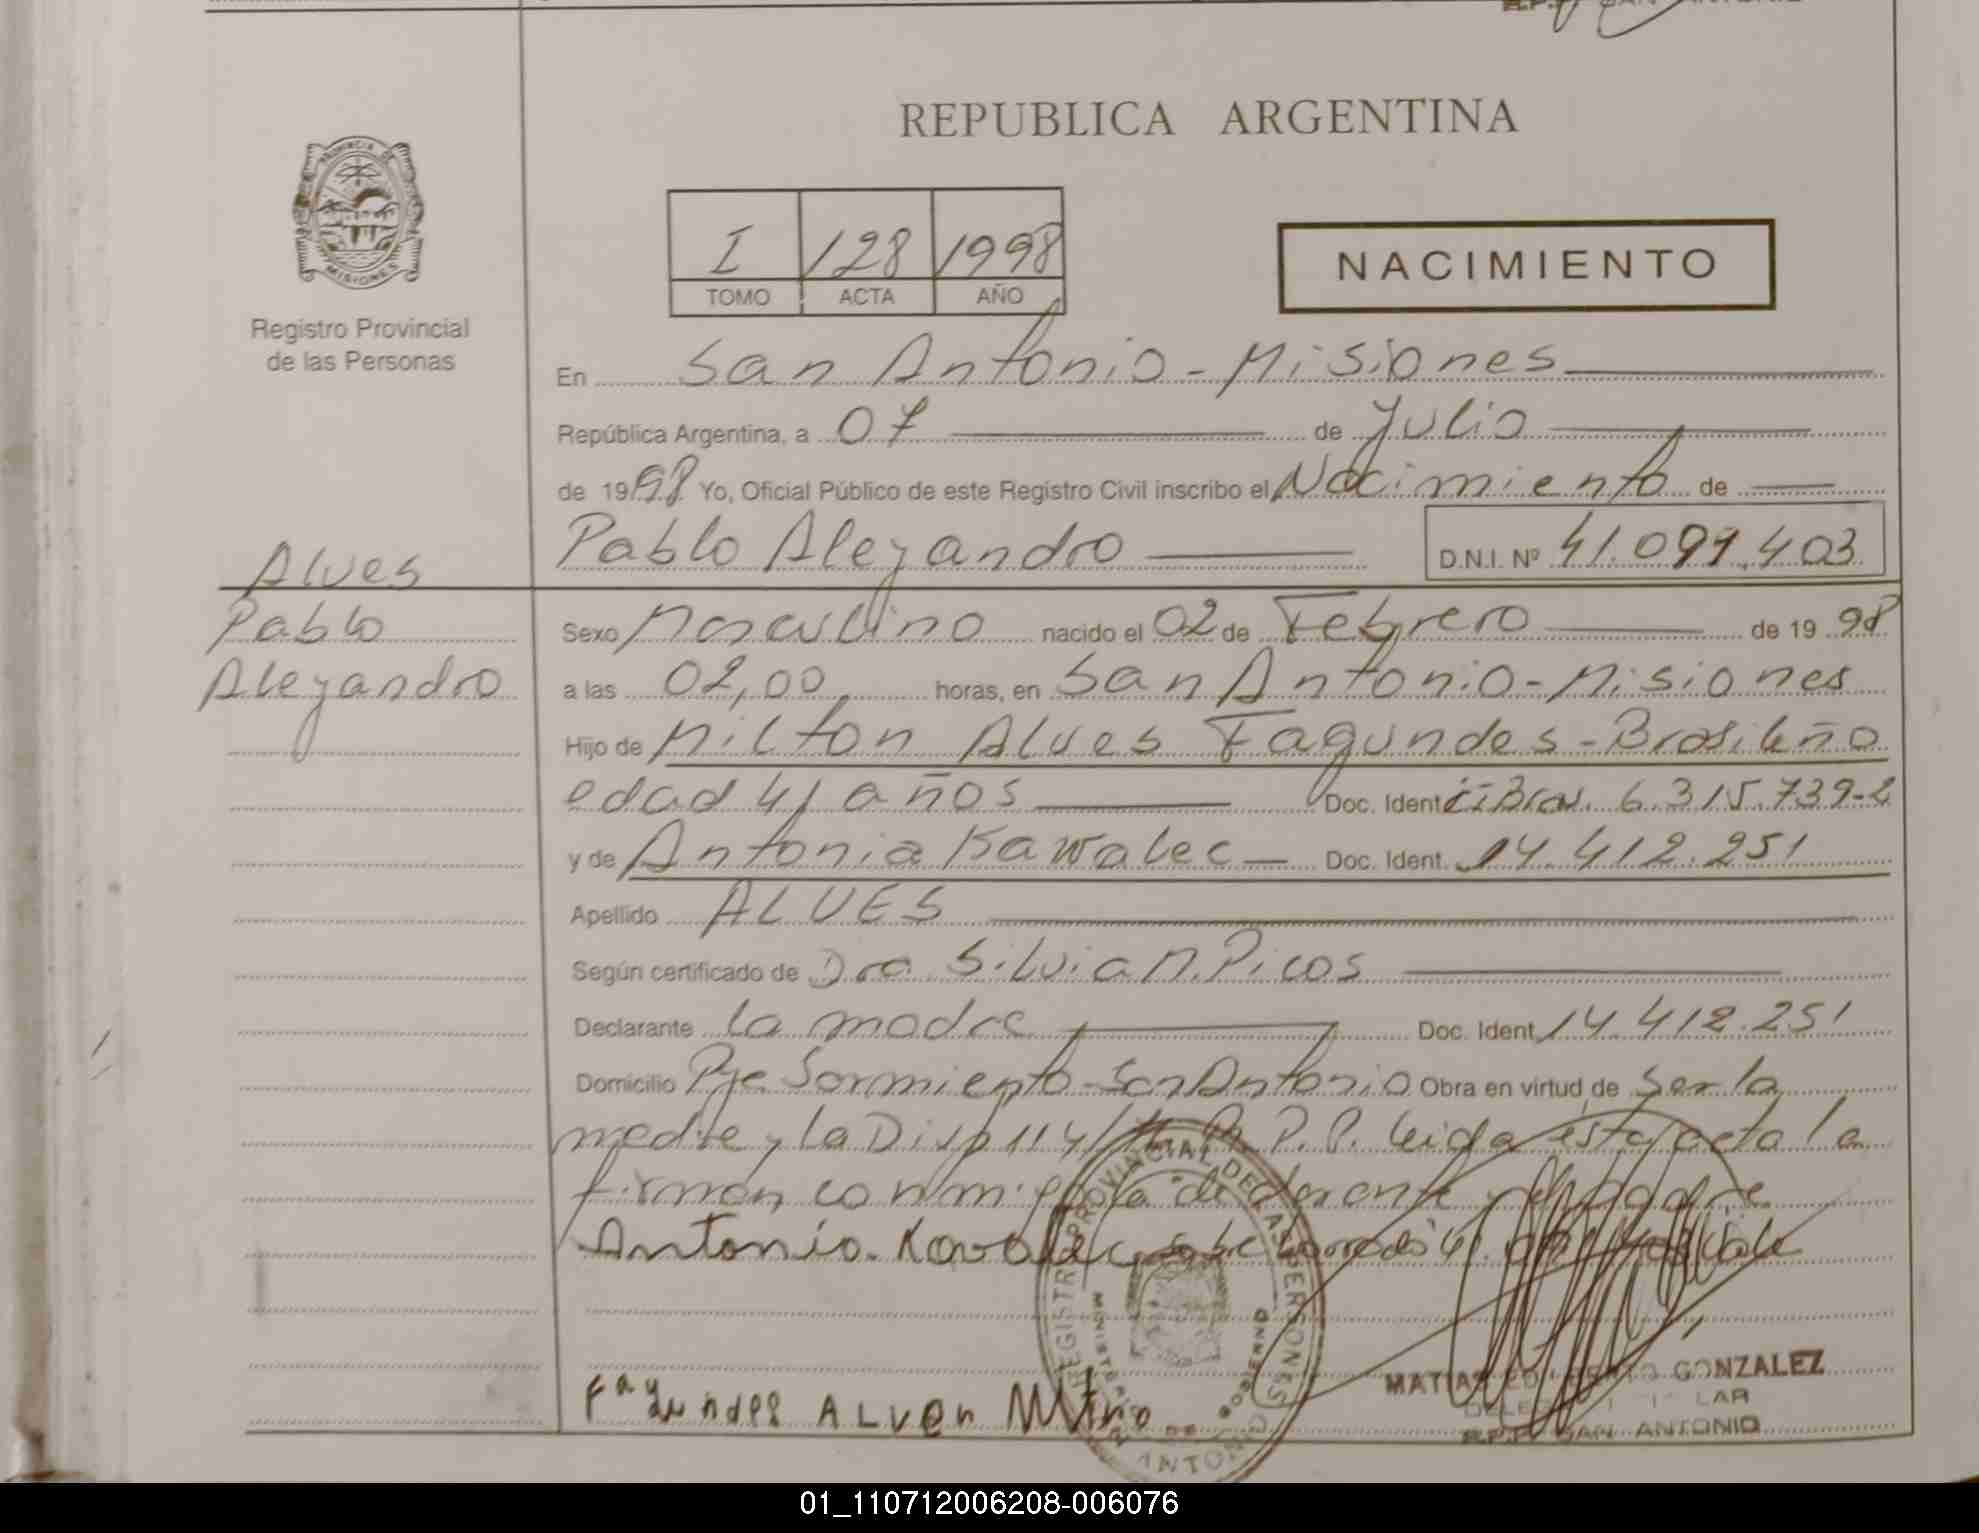 REPUBLICA ARGENTINA
PROVINCIA DE
MISIONES
Registro Provincial
de las Personas
I 128 1998
TOMO ACTA AÑO
NACIMIENTO
En San Antonio - Misiones
República Argentina, a 07 de Julio
de 1998 Yo, Oficial Público de este Registro Civil inscribo el Nacimiento de
Pablo Aleyandro D.N.I. Nº 41.091.403
Alves
Pablo
Aleyandro
Sexo Masculino nacido el 02 de Febrero de 1998
a las 02,00 horas, en San Antonio - Misiones
Hijo de Milton Alves Fagundes - Brasileño
edad 41 años Doc. Ident. 6.315.739-2
y de Antonia Kawalec Doc. Ident. 14.412.251
Apellido ALVES
Según certificado de Dra Silvia M. Picos
Declarante la madre Doc. Ident. 14.412.251
Domicilio Pje Sarmiento - San Antonio Obra en virtud de ser la
madre y la Disp 114/ R.P.P. leida esta acta la
firman conmigo la declarante y el padre
Antonia Kovalec sobre borrado 41 Vale
Fagundes ALVen
REGISTRO PROVINCIAL DE LAS PERSONAS
MINISTERIO DE GOBIERNO
ANTONIO
MATIAS GONZALEZ
R.P.P. SAN ANTONIO
01_110712006208-006076